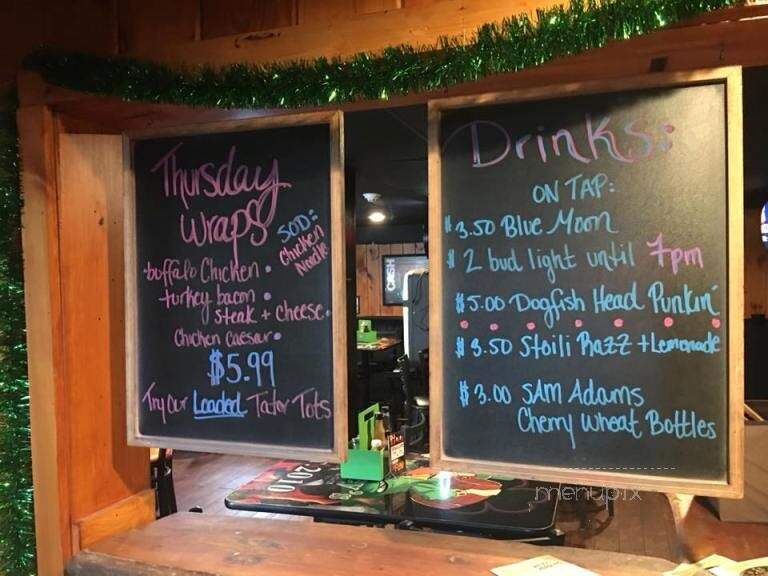 Thursday
Wraps
SOD:
Chicken
Noodle
buffalo Chicken
turkey bacon
steak + cheese
Chicken caesar
$5.99
Try our Loaded Tater Tots
Drinks:
ON TAP:
$3.50 Blue Moon
$2 bud light until 7pm
$5.00 Dogfish Head Punkin'
$3.50 Stoili Razz + Lemonade
$3.00 SAM Adams
Cherry Wheat Bottles
2010
menupix